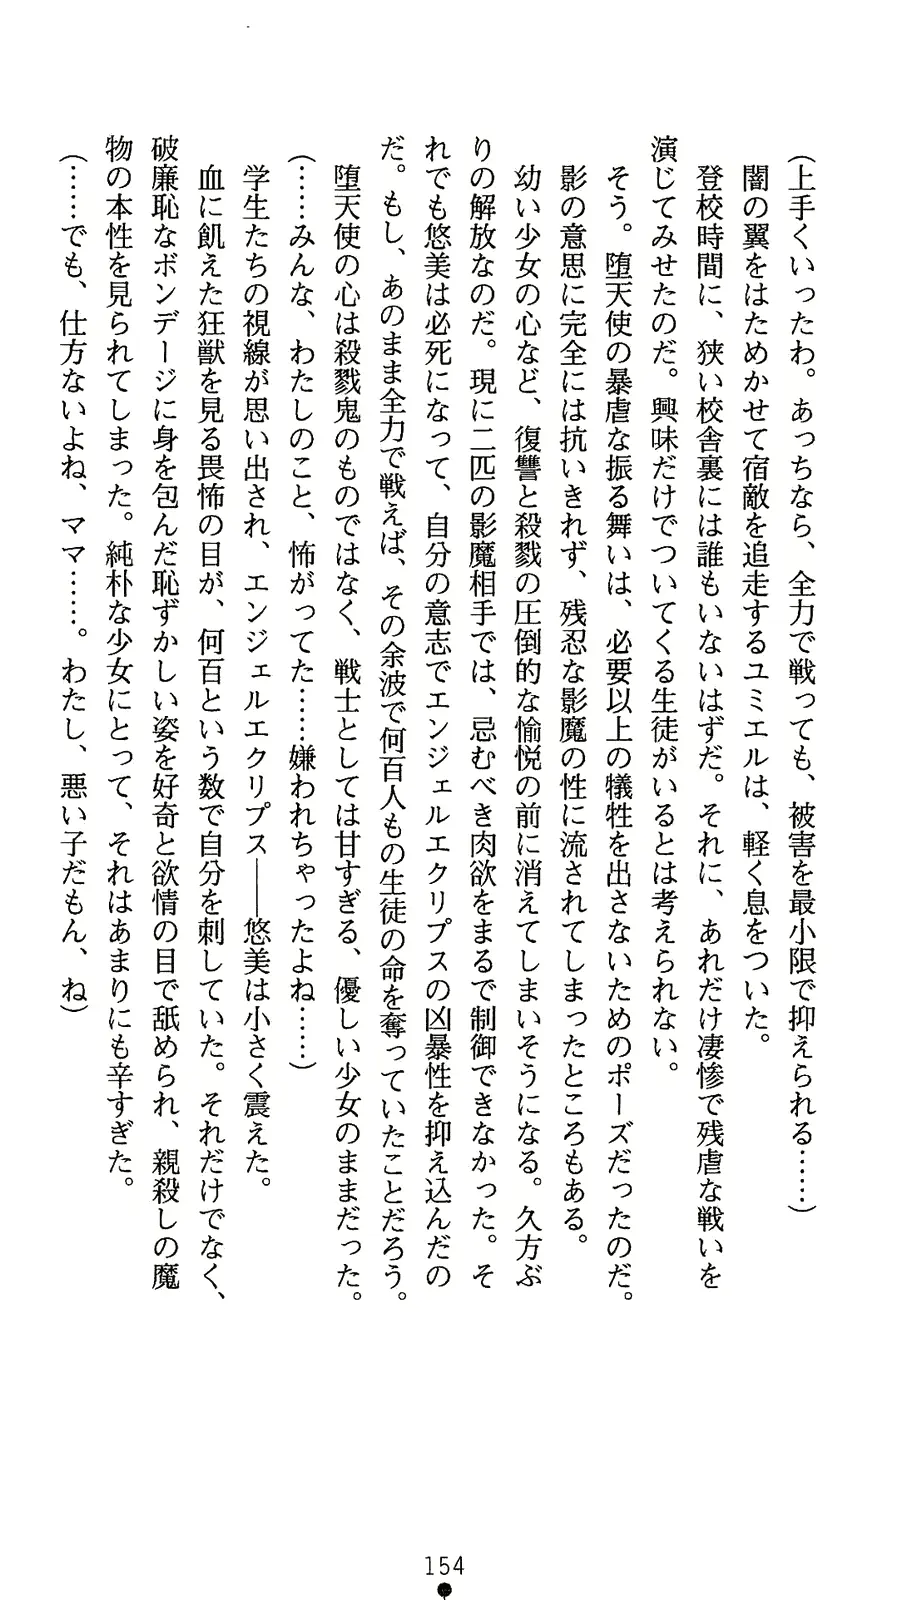 (上手くいったわ。あっちなら、全力で戦っても、被害を最小限で抑えられる……)
闇の翼をはためかせて宿敵を追走するユミエルは、軽く息をついた。
登校時間に、狭い校舎裏には誰もいないはずだ。それに、あれだけ凄惨で残虐な戦いを
演じてみせたのだ。興味だけでついてくる生徒がいるとは考えられない。
そう。堕天使の暴虐な振る舞いは、必要以上の犠牲を出さないためのポーズだったのだ。
影の意思に完全には抗いきれず、残忍な影魔の性に流されてしまったところもある。
幼い少女の心など、復讐と殺戮の圧倒的な愉悦の前に消えてしまいそうになる。久方ぶ
りの解放なのだ。現に二匹の影魔相手では、忌むべき肉欲をまるで制御できなかった。そ
れでも悠美は必死になって、自分の意志でエンジェルエクリプスの凶暴性を抑え込んだの
だ。もし、あのまま全力で戦えば、その余波で何百人もの生徒の命を奪っていたことだろう。
堕天使の心は殺戮鬼のものではなく、戦士としては甘すぎる、優しい少女のままだった。
(……みんな、わたしのこと、怖がってた……嫌われちゃったよね……)
学生たちの視線が思い出され、エンジェルエクリプス――悠美は小さく震えた。
血に飢えた狂獣を見る畏怖の目が、何百という数で自分を刺していた。それだけでなく、
破廉恥なボンデージに身を包んだ恥ずかしい姿を好奇と欲情の目で舐められ、親殺しの魔
物の本性を見られてしまった。純朴な少女にとって、それはあまりにも辛すぎた。
(……でも、仕方ないよね、ママ……。わたし、悪い子だもん、ね)
154